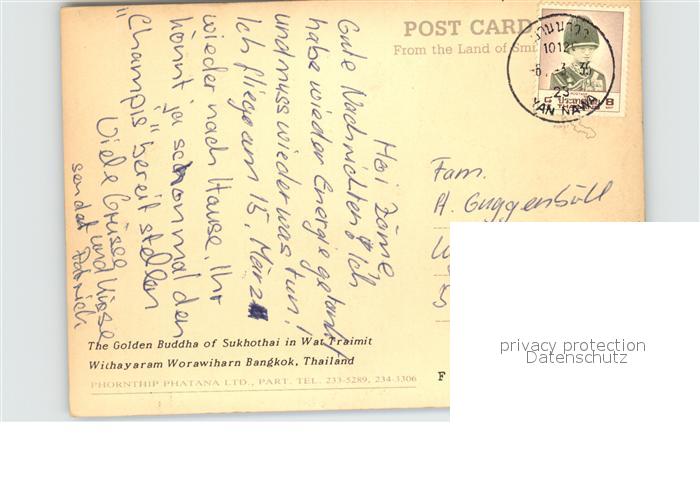 POST CARD
From the Land of Smi
10121
YAN NAWA
THAILAND
Hoi Zäme
Gute Nachrichten! Ich
habe wieder Energie getankt
und muss wieder was tun!
Ich fliege am 15. März
wieder nach Hause. Ihr
könnt ja schon mal den
"Champis" bereit stellen
Viele Grüsse
und Küsse
sendet Patrick
Fam.
H. Guggenbüll
The Golden Buddha of Sukhothai in Wat Traimit
Withayaram Worawiharn Bangkok, Thailand
PHORNTHIP PHATANA LTD., PART. TEL. 233-5289, 234-3306
F
privacy protection
Datenschutz